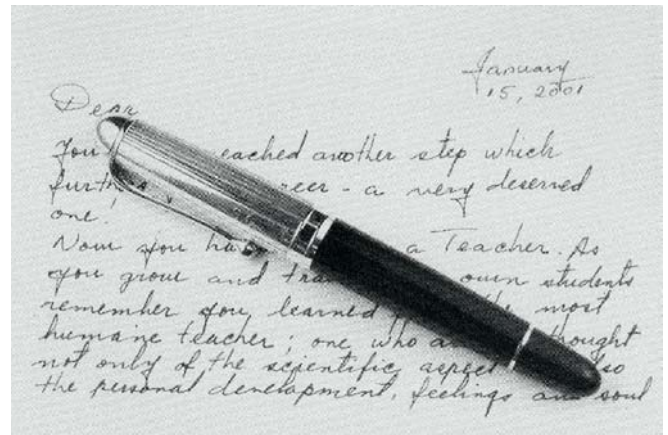 January
15, 2001
Dear
You eached another step which
furth reer - a very deserved
one!
Now you ha a Teacher. As
you grow and tra own students
remember you learned the most
humane teacher; one who a thought
not only of the scientific aspect so
the personal development, feelings and soul